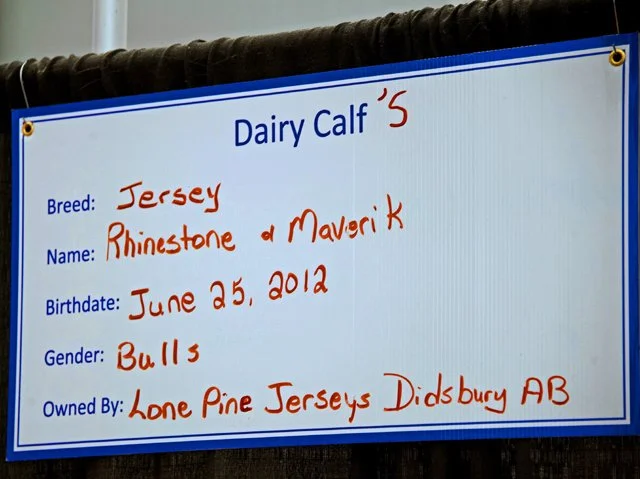 Dairy Calf 'S
Breed: Jersey
Name: Rhinestone & Maverik
Birthdate: June 25, 2012
Gender: Bulls
Owned By: Lone Pine Jerseys Didsbury AB